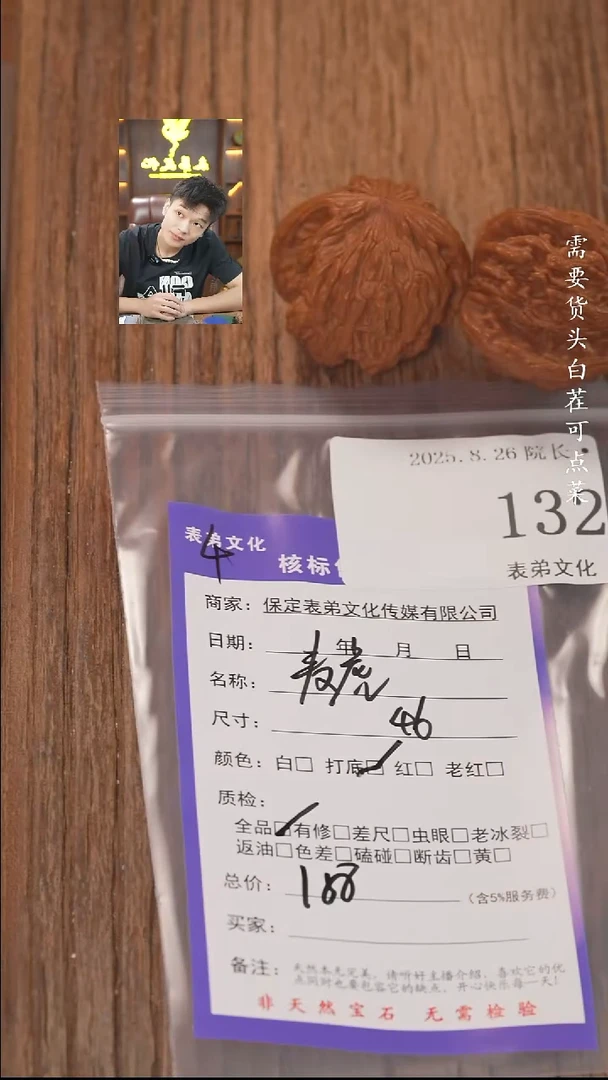 需要货头白茬可点菜
2025.8.26 院长·
132
表弟文化
表弟文化
4
核标
商家: 保定表弟文化传媒有限公司
日期: 年 月 日
名称:
尺寸: 46
颜色: 白□ 打底□ 红□ 老红□
质检:
全品□有修□差尺□虫眼□老冰裂□
返油□色差□磕碰□断齿□黄□
总价: 188 (含5%服务费)
买家:
备注: 天然本无完美，请听好主播介绍，喜欢它的优
点同时也要包容它的缺点，开心快乐每一天!
非天然宝石 无需检验